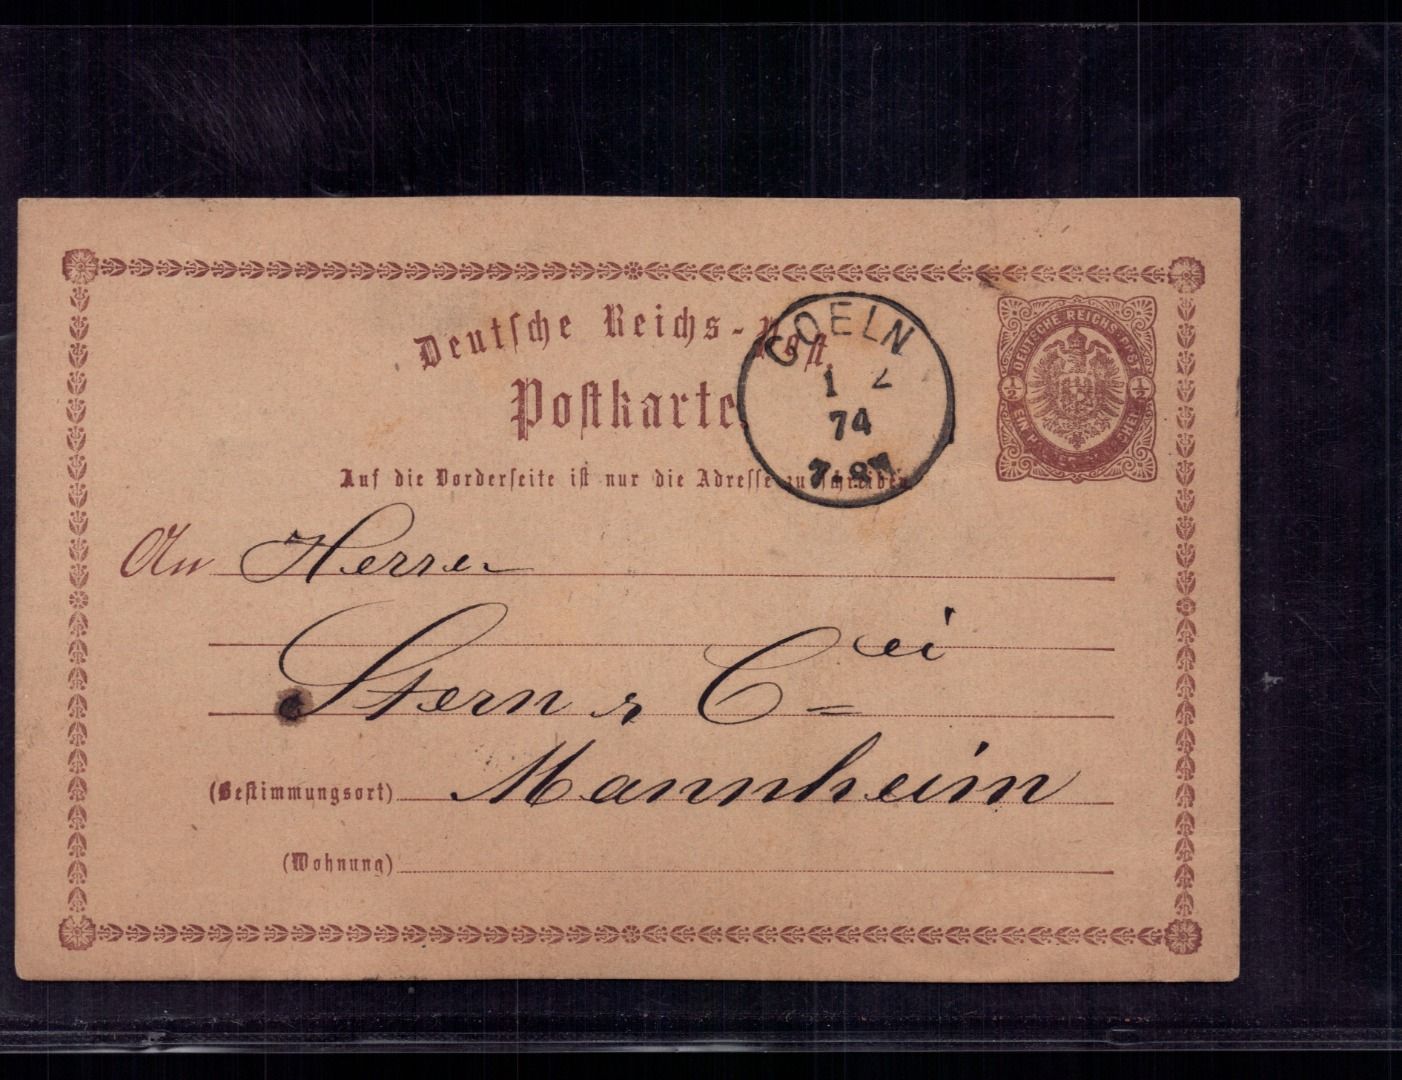 Deutsche Reichs-Post.
Postkarte.
Auf die Vorderseite ist nur die Adresse zu schreiben.
COELN
1 2
74
7-8N
DEUTSCHE REICHS-POST
½ ½
EIN HALBER GROSCHEN
An Herren
Stern & Cie
(Bestimmungsort) Mannheim
(Wohnung)